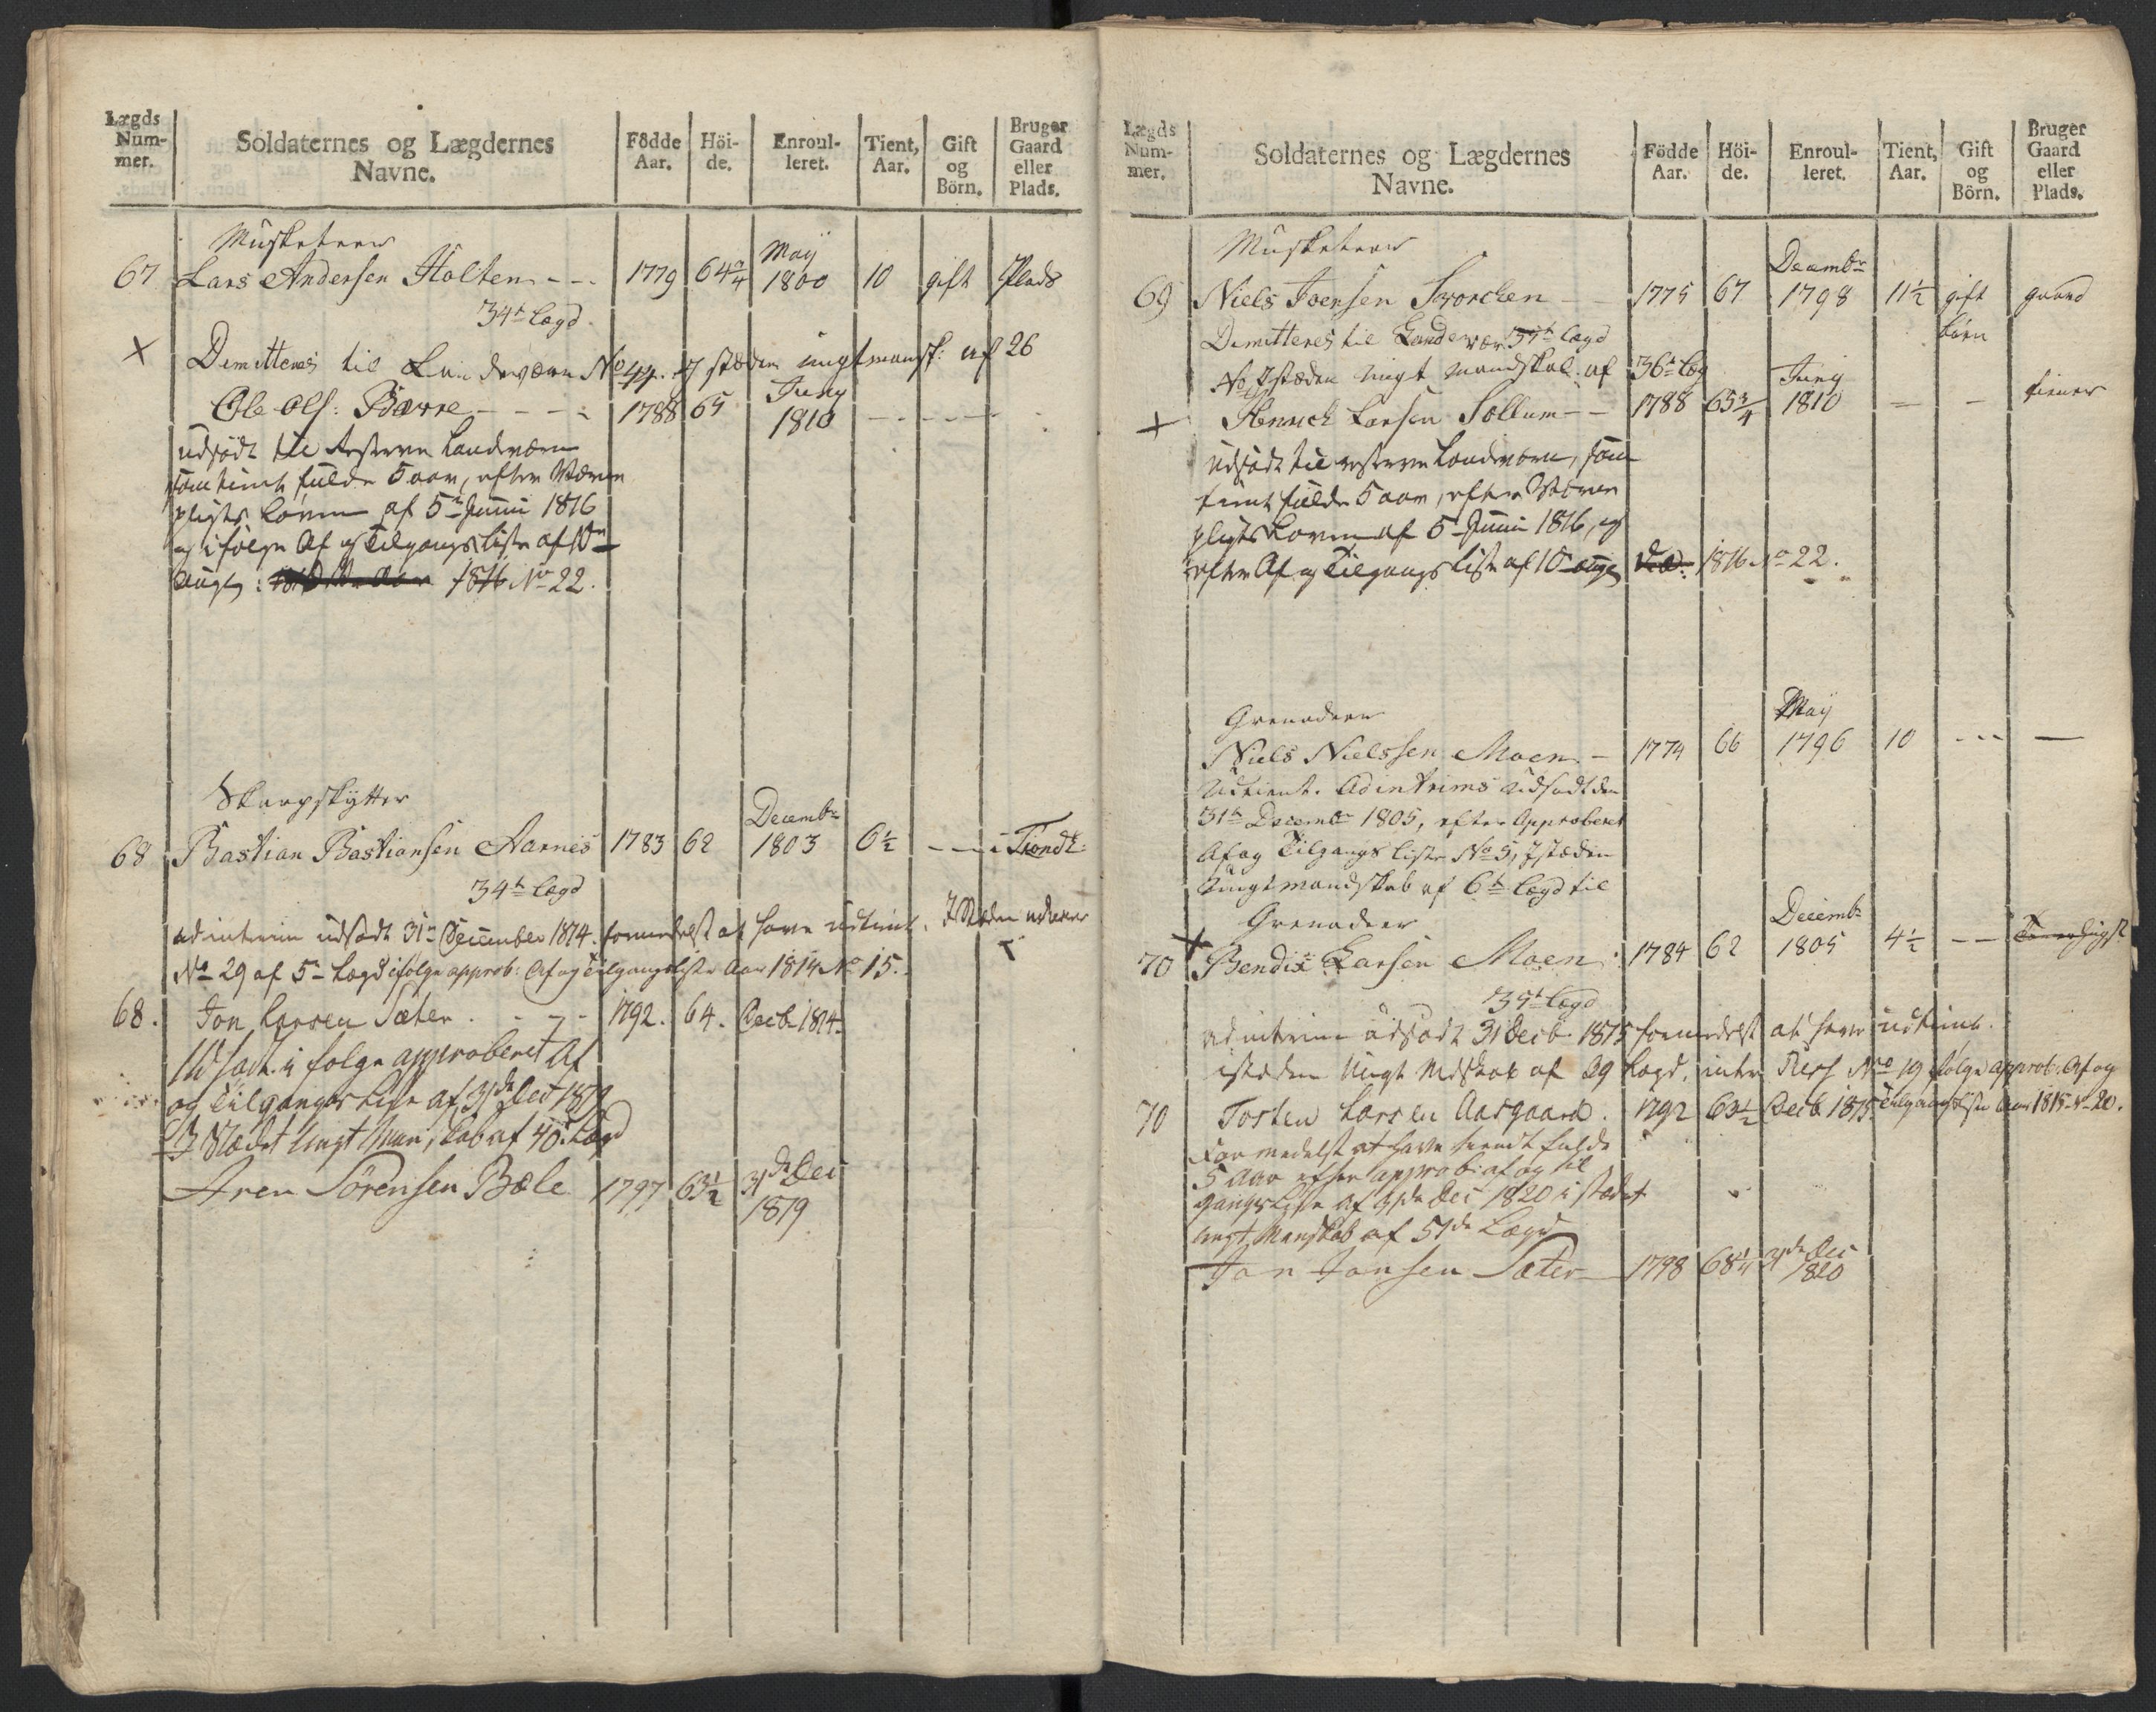 Lægds Num- mer. Soldaternes og Lægdernes Navne. Födde Aar. Höi- de. Enroul- leret. Tient, Aar. Gift og Börn. Bruger Gaard eller Plads.
Musketeer
May
67 Lars Andersen Holten - - - 1779 64 3/4 1800 10 gift Plads
34te Lægd.
Demitteres til Landeværn No 44. I stæden ungt mansk: af 26
Juny
Ole Ols: Børre - - - - 1788 65 1810 - - - - -
udsadt til Reserve Landværn
som tient fulde 5 aar, efter Værne
pligts Loven af 5te Junii 1816
og i følge Af og Tilgangs Liste af 10de
Aug: 1816 No 22.
Skarpskytter
Decembr
68 Bastian Bastiansen Aarnes 1783 62 1803 6 1/2 - - -
34te Lægd
ad interim udsadt 31te December 1814. formedelst at have udtient. I Stæden
No 29 af 5te Lægd ifølge approb: Af og Tilgangsliste Aar 1814 No 15.
68. Jon Larsen Sæter . - - - 1792. 64. Decb 1814.
Udsadt i følge approberet Af
og Tilgangs Liste af 31de Dec 1819
I Stædet Ungt Manskab af 40. Lægd
Aren Sörensen Bæle 1797 63 1/2 31de Dec
1819
Lægds Num- mer. Soldaternes og Lægdernes Navne. Födde Aar. Höi- de. Enroul- leret. Tient, Aar. Gift og Börn. Bruger Gaard eller Plads.
Musketeer
Decembr
69 Niels Joensen - - 1775 67 1798 11 1/2 gift gaard
Demitteres til Landeværn 35te Lægd børn
No I stæden ungt mandskab af 36te Læg
Juny
Henrich Larsen Sollum - - 1788 65 3/4 1810 - - tiener
udsadt til reserve Landværn, som
tient fulde 5 aar, efter Værne
pligts Loven af 5te Junii 1816, og
efter Af og Tilgangs Liste af 10 aug 1816 No 22.
Grenadeer
May
Niels Nielssen Moen - 1774 66 1796 10 - - - -
Udtient. Ad intrims Udsadt den
31te Decembr 1805, efter Approberet
Af og Tilgangs Liste No 5, I stæden
Ungt mandskab af 6te Lægd til
Grenadeer
Decembr
70 Bendix Larsen Moen . 1784 62 1805 4 1/2 - -
35te Lægd
ad interim udsadt 31 Decb 1815 formedelst at have udtient.
istæden Ungt Mdskab af 29 Lægd, No 19 følge approb: Af og
70 Tosten Larsen Aasgaard . 1792 63 1/2 Decb 1815 Tilgangsliste Aar 1815 No 20.
Formedelst at have tiendt fulde
5 Aar efter approb: af og til
gangs Liste af 31de Dec 1820 i stædet
ungt Manskab af 51de Lægd
Jon Jonsen Sæter 1798 68 1/4 31de Dec
1820